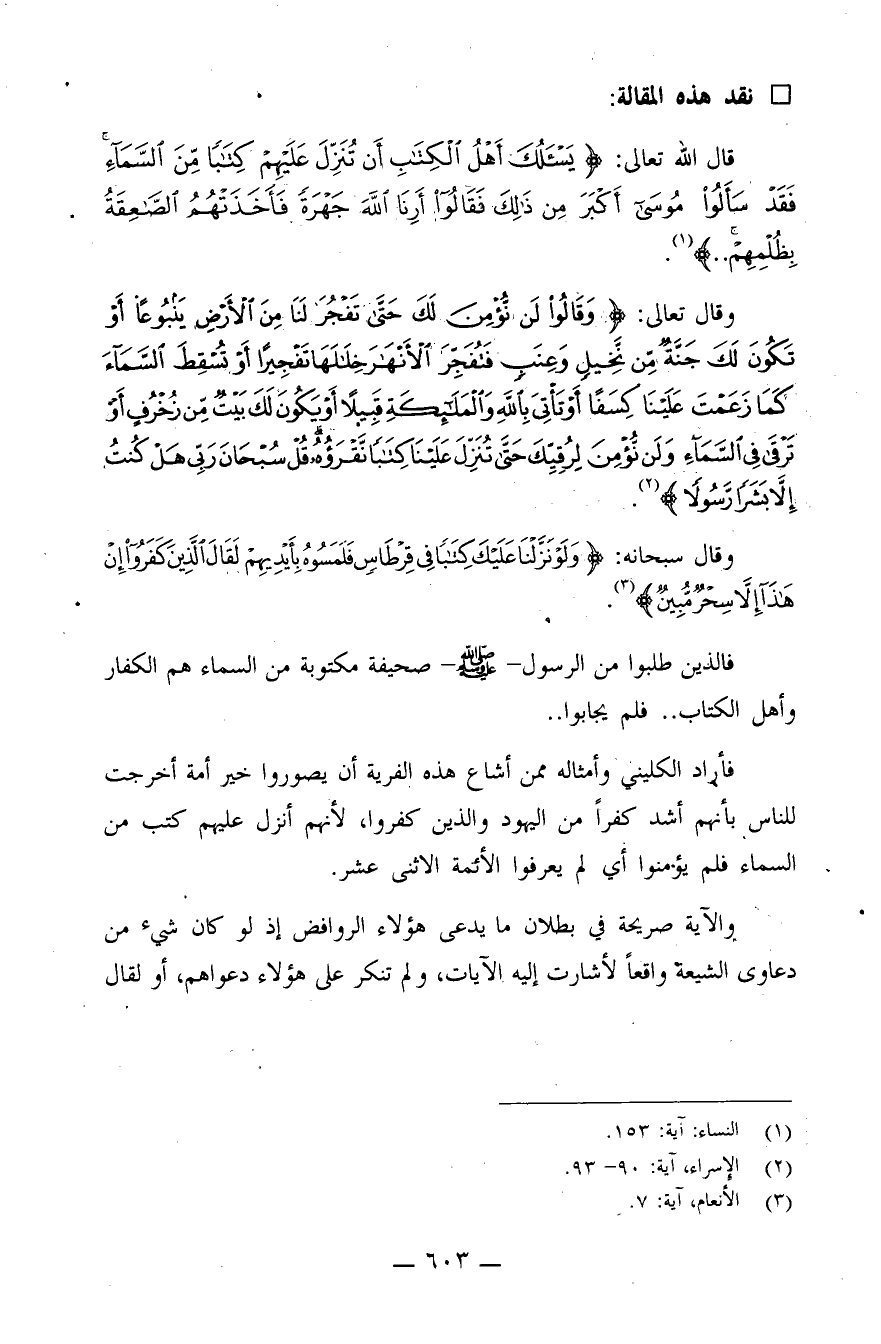 □ نقد هذه المقالة:
قال الله تعالى: ﴿ يَسْـَٔلُكَ أَهْلُ ٱلْكِتَٰبِ أَن تُنَزِّلَ عَلَيْهِمْ كِتَٰبًا مِّنَ ٱلسَّمَآءِ ۚ
فَقَدْ سَأَلُوا۟ مُوسَىٰٓ أَكْبَرَ مِن ذَٰلِكَ فَقَالُوٓا۟ أَرِنَا ٱللَّهَ جَهْرَةً فَأَخَذَتْهُمُ ٱلصَّٰعِقَةُ
بِظُلْمِهِمْ ۚ..﴾(١).
وقال تعالى: ﴿ وَقَالُوا۟ لَن نُّؤْمِنَ لَكَ حَتَّىٰ تَفْجُرَ لَنَا مِنَ ٱلْأَرْضِ يَنۢبُوعًا أَوْ
تَكُونَ لَكَ جَنَّةٌ مِّن نَّخِيلٍ وَعِنَبٍ فَتُفَجِّرَ ٱلْأَنْهَٰرَ خِلَٰلَهَا تَفْجِيرًا أَوْ تُسْقِطَ ٱلسَّمَآءَ
كَمَا زَعَمْتَ عَلَيْنَا كِسَفًا أَوْ تَأْتِىَ بِٱللَّهِ وَٱلْمَلَٰٓئِكَةِ قَبِيلًا أَوْ يَكُونَ لَكَ بَيْتٌ مِّن زُخْرُفٍ أَوْ
تَرْقَىٰ فِى ٱلسَّمَآءِ وَلَن نُّؤْمِنَ لِرُقِيِّكَ حَتَّىٰ تُنَزِّلَ عَلَيْنَا كِتَٰبًا نَّقْرَؤُهُۥ ۗ قُلْ سُبْحَانَ رَبِّى هَلْ كُنتُ
إِلَّا بَشَرًا رَّسُولًا ﴾(٢).
وقال سبحانه: ﴿ وَلَوْ نَزَّلْنَا عَلَيْكَ كِتَٰبًا فِى قِرْطَاسٍ فَلَمَسُوهُ بِأَيْدِيهِمْ لَقَالَ ٱلَّذِينَ كَفَرُوٓا۟ إِنْ
هَٰذَآ إِلَّا سِحْرٌ مُّبِينٌ ﴾(٣).
فالذين طلبوا من الرسول– ﷺ – صحيفة مكتوبة من السماء هم الكفار
وأهل الكتاب.. فلم يجابوا..
فأراد الكليني وأمثاله ممن أشاع هذه الفرية أن يصوروا خير أمة أخرجت
للناس بأنهم أشد كفراً من اليهود والذين كفروا، لأنهم أنزل عليهم كتب من
السماء فلم يؤمنوا أي لم يعرفوا الأئمة الاثنى عشر.
والآية صريحة في بطلان ما يدعى هؤلاء الروافض إذ لو كان شيء من
دعاوى الشيعة واقعاً لأشارت إليه الآيات، ولم تنكر على هؤلاء دعواهم، أو لقال
(١) النساء: آية: ١٥٣.
(٢) الإسراء، آية: ٩٠– ٩٣.
(٣) الأنعام، آية: ٧.
— ٦٠٣ —